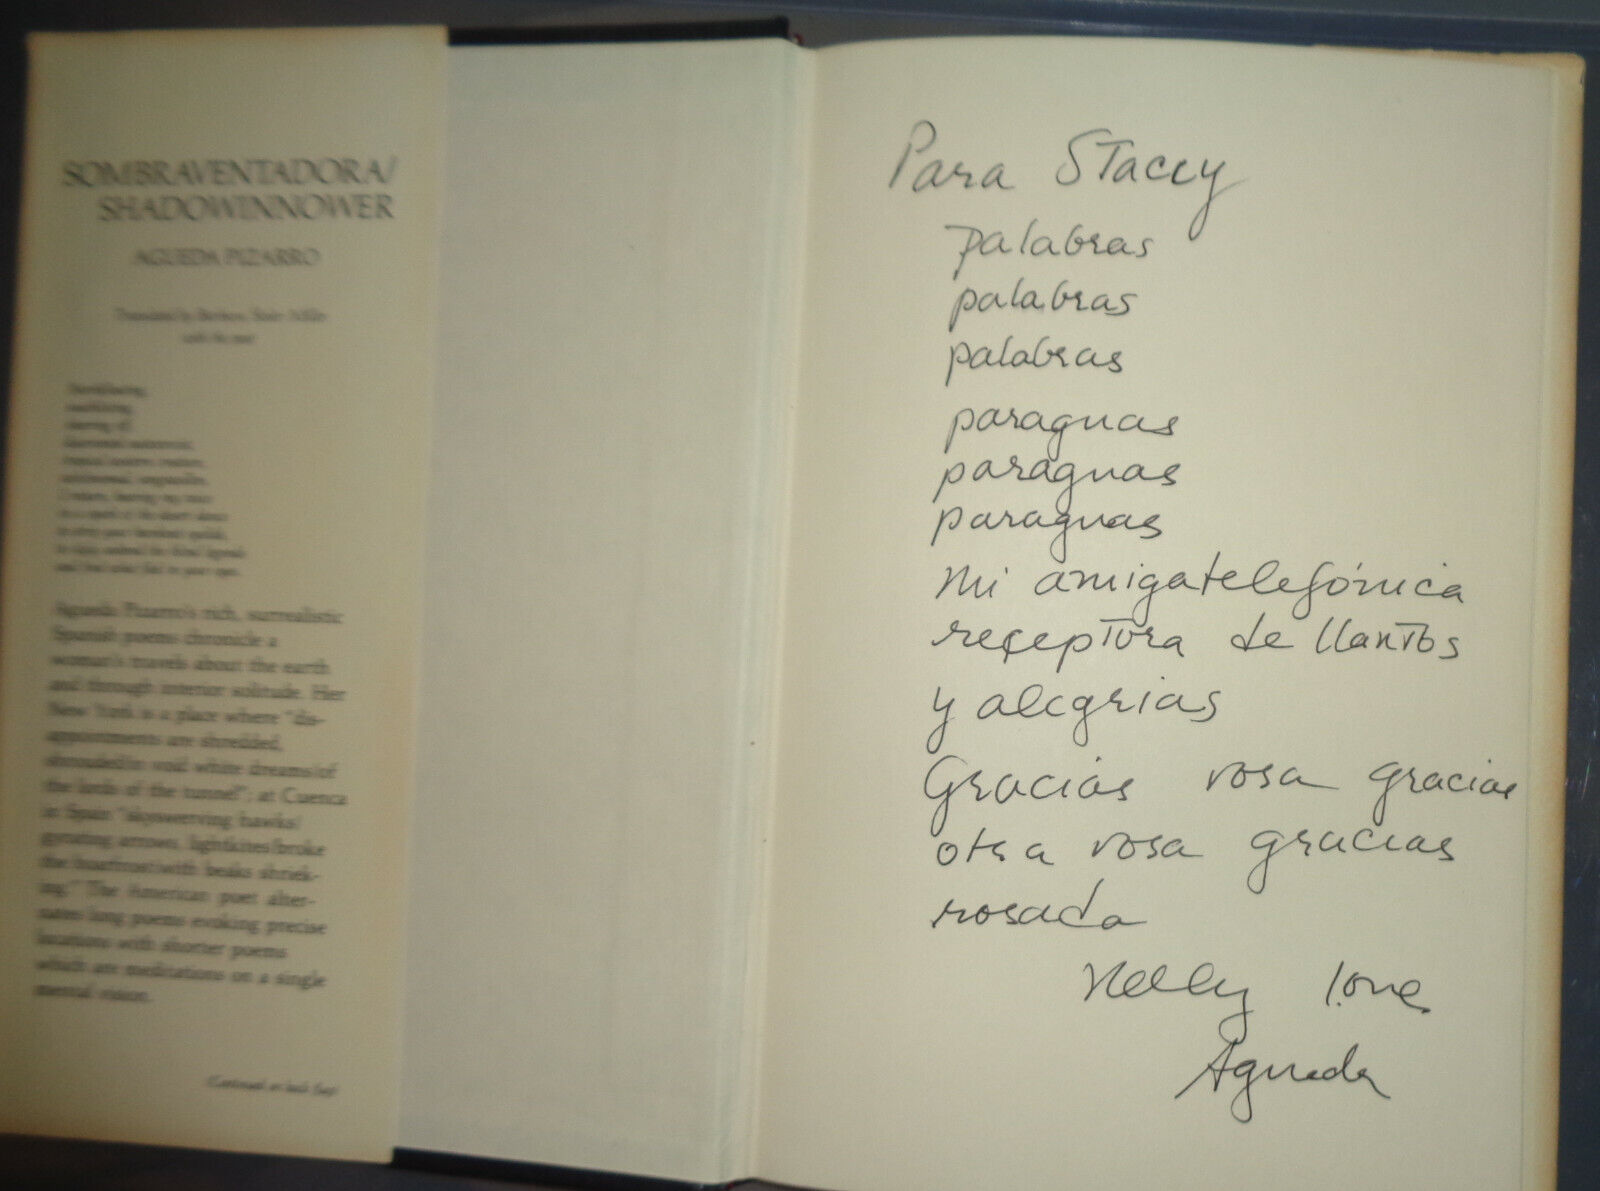 SOMBRAVENTADORA/
SHADOWINNOWER
AGUEDA PIZARRO
Translated by Barbara Stoler Miller
with the poet
Agueda Pizarro's rich, surrealistic
Spanish poems chronicle a
woman's travels about the earth
and through interior solitude. Her
New York is a place where "dis-
appointments are shredded,
shrouded/in void white dreams/of
the lords of the tunnel"; at Cuenca
in Spain "skyswerving hawks/
gyrating arrows, lightknites/broke
the hoarfrost/with beaks shriek-
ing." The American poet alter-
nates long poems evoking precise
locations with shorter poems
which are meditations on a single
mental vision.
(Continued on back flap)
Para Stacey
palabras
palabras
palabras
paraguas
paraguas
paraguas
mi amigatelefónica
receptora de llantos
y alegrias
Gracias rosa gracias
otra rosa gracias
rosada
love
Agueda